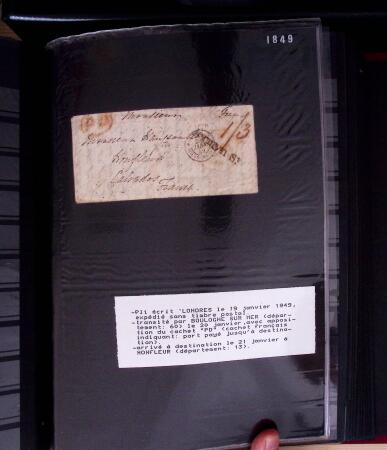 1849
PD
Monsieur
1/3
Monsieur
Honfleur
Calvados
France
-Pli écrit 'LONDRES le 19 janvier 1849,
expédié sans timbre postal
-transité par BOULOGNE SUR MER (dépar-
tement: 60) le 20 janvier avec apposi-
tion du cachet "PD" (cachet français
indiquant: port payé jusqu'à destina-
tion).
-arrivé à destination le 21 janvier à
HONFLEUR (département: 13).